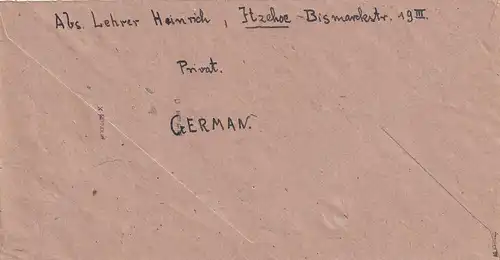 Abs. Lehrer Heinrich, Itzehoe - Bismarckstr. 19 III.
Privat.
GERMAN.